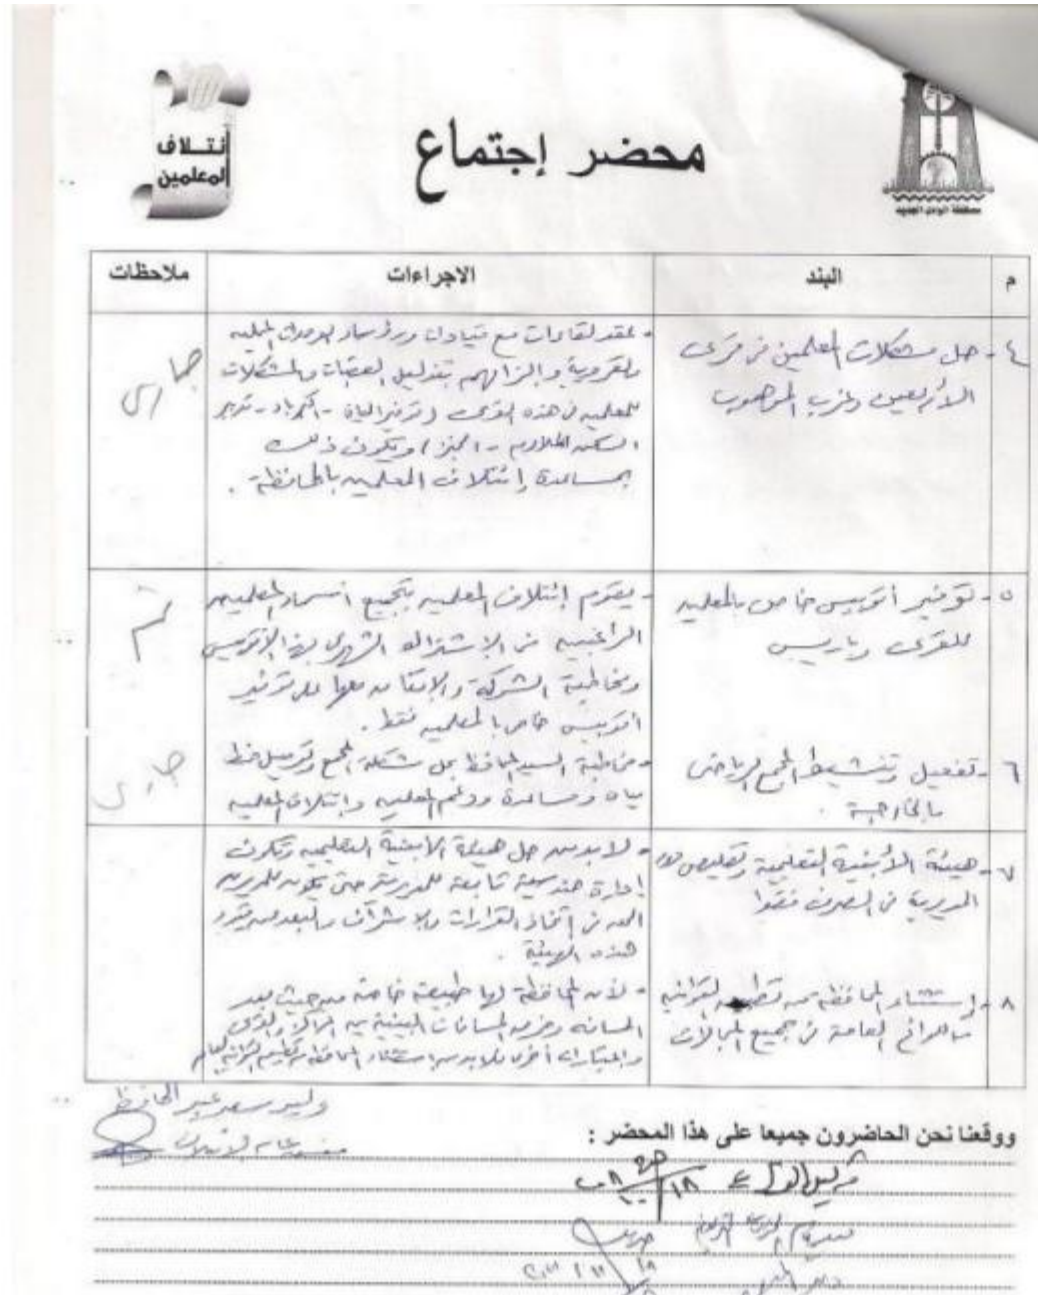 ائتلاف
المعلمين
محضر إجتماع
محافظة الوادى الجديد
م
البند
الاجراءات
ملاحظات
٤ - حل مشكلات المعلمين فى قرى
الأربعين وغرب الموهوب
- عقد لقاءات مع قيادات ورؤساء الوحدات المحلية
والقروية والزامهم بتذليل العقبات والمشكلات
للمعلمين فى هذه القرى (توفير المياه - الكهرباء - توفير
السكن الملائم - الخبز) ويكون ذلك
بمساعدة إئتلاف المعلمين بالمحافظة .
جارى
٥ - توفير أتوبيس خاص بالمعلمين
للقرى وباريس
- يقوم إئتلاف المعلمين بتجميع أسماء المعلمين
الراغبين فى الإشتراك الشهرى بهذا الأتوبيس
ومخاطبة الشركة والإتفاق معها على توفير
أتوبيس خاص بالمعلمين فقط .
تم
٦ - تفعيل وتنشيط المجمع الرياضى
بالخارجة .
- مخاطبة السيد المحافظ بحل مشكلة المجمع وتوصيل خط
مياه ومساعدة ودعم المعلمين وائتلاف المعلمين
جارى
٧ - هيئة الأبنية التعليمية وتقليص دور
المديرية فى الصرف فقط
- لابد من حل هيئة الأبنية التعليمية وتكون
إدارة هندسية تابعة للمديرية حتى يكون للمديرية
الحق فى اتخاذ القرارات والاشراف والبعد عن قيود
هذه الهيئة .
٨ - إستثناء المحافظة من تطبيق القوانين
واللوائح العامة فى جميع المجالات
- لأن المحافظة لها طبيعة خاصة من حيث بعد
المسافة وغيرها المسافات البينية بين المراكز والقرى
والمبتارات أخرى فلابد من استثناء المحافظة من تطبيق القوانين العامة
وليد سعد عبد الحافظ
منسق عام الائتلاف
ووقعنا نحن الحاضرون جميعا على هذا المحضر :